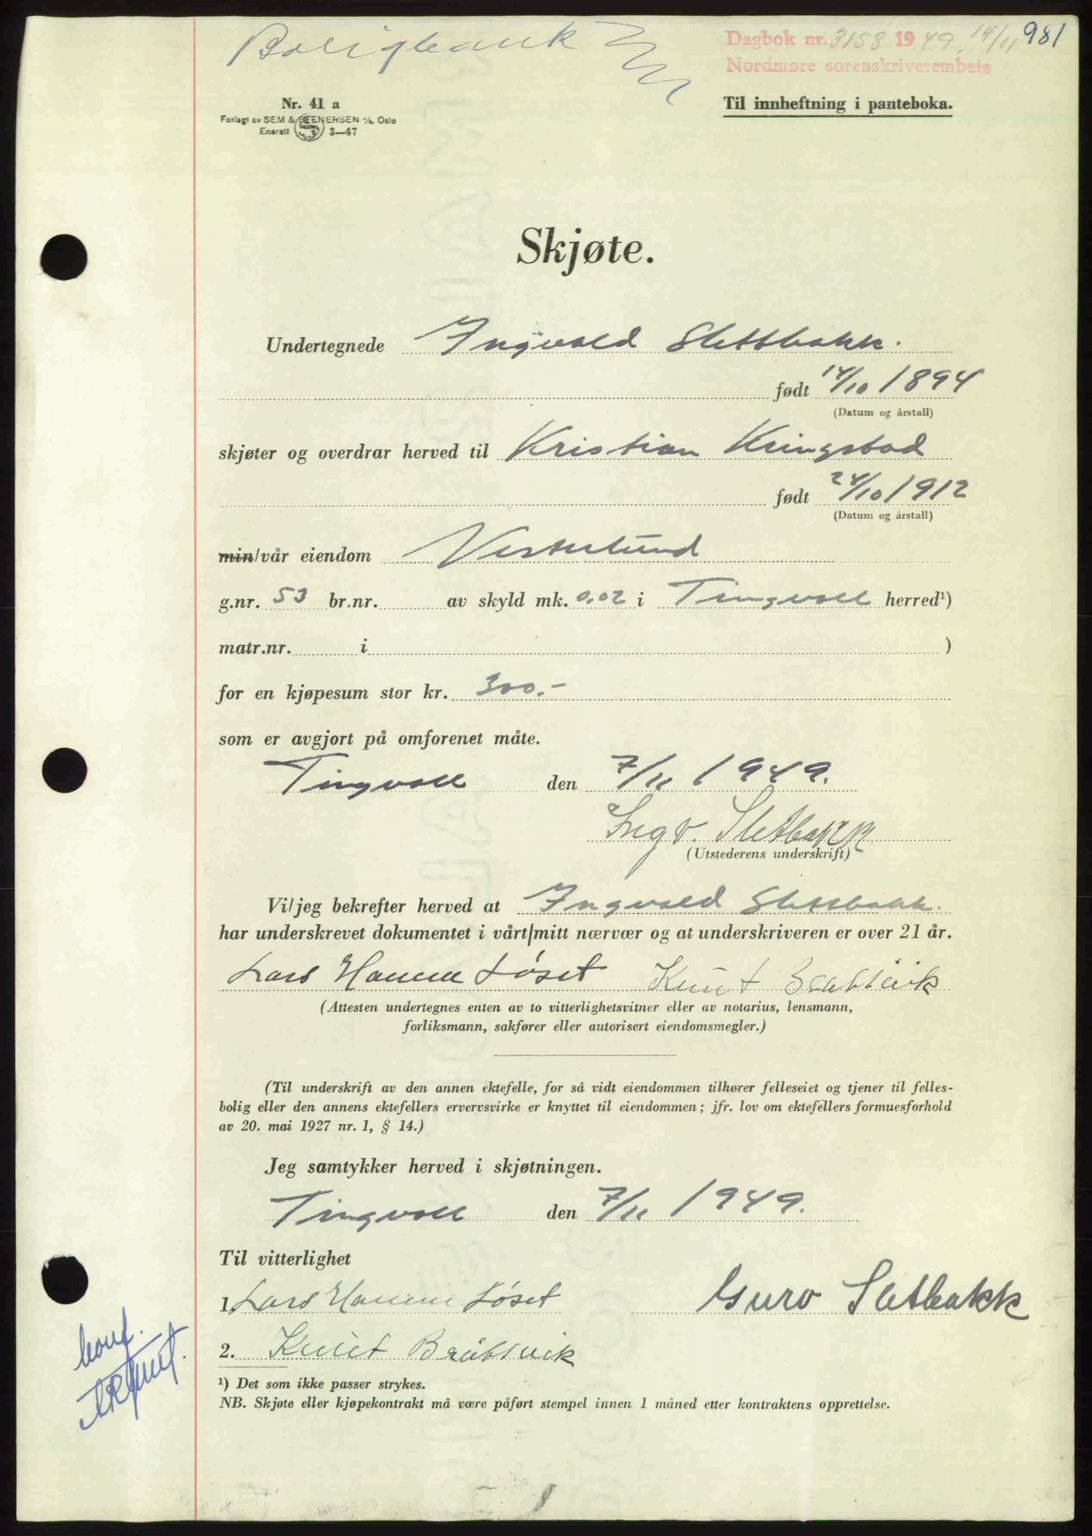 Boligbank
Dagbok nr. 3158 1949. 14/11 981
Nordmøre sorenskriverembete
Nr. 41 a
Til innheftning i panteboka.
Forlagt av SEM & STENERSEN A/S, Oslo
Enerett 3—47
Skjøte.
Undertegnede Ingvald Slettbakk.
født 14/10 1894
(Datum og årstall)
skjøter og overdrar herved til Kristian Kringstad
født 24/10 1912
(Datum og årstall)
min/vår eiendom Vesterlund
g.nr. 53 br.nr. av skyld mk. 0.02 i Tingvoll herred¹)
matr.nr. i )
for en kjøpesum stor kr. 300.-
som er avgjort på omforenet måte.
Tingvoll den 7/11 1949.
Ingv. Sletbakk
(Utstederens underskrift)
Vi/jeg bekrefter herved at Ingvald Slettbakk.
har underskrevet dokumentet i vårt/mitt nærvær og at underskriveren er over 21 år.
Lars Hanem Løset Knut Bråtsvik
(Attesten undertegnes enten av to vitterlighetsvitner eller av notarius, lensmann,
forliksmann, sakfører eller autorisert eiendomsmegler.)
(Til underskrift av den annen ektefelle, for så vidt eiendommen tilhører felleseiet og tjener til felles-
bolig eller den annens ektefellers ervervsvirke er knyttet til eiendommen; jfr. lov om ektefellers formuesforhold
av 20. mai 1927 nr. 1, § 14.)
Jeg samtykker herved i skjøtningen.
Tingvoll den 7/11 1949.
Til vitterlighet
1. Lars Hanem Løset Guro Sletbakk
2. Knut Bråtsvik
konf.
¹) Det som ikke passer strykes.
NB. Skjøte eller kjøpekontrakt må være påført stempel innen 1 måned etter kontraktens opprettelse.